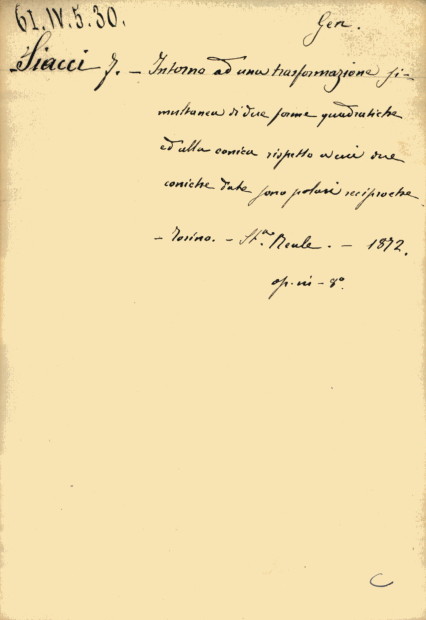 61.IV.5.30.
Gen.
Siacci F. – Intorno ad una trasformazione si-
multanea di due forme quadratiche
ed alla conica rispetto a cui due
coniche date sono polari reciproche
– Torino. – St.ª Reale. – 1872.
op. in – 8º.
C